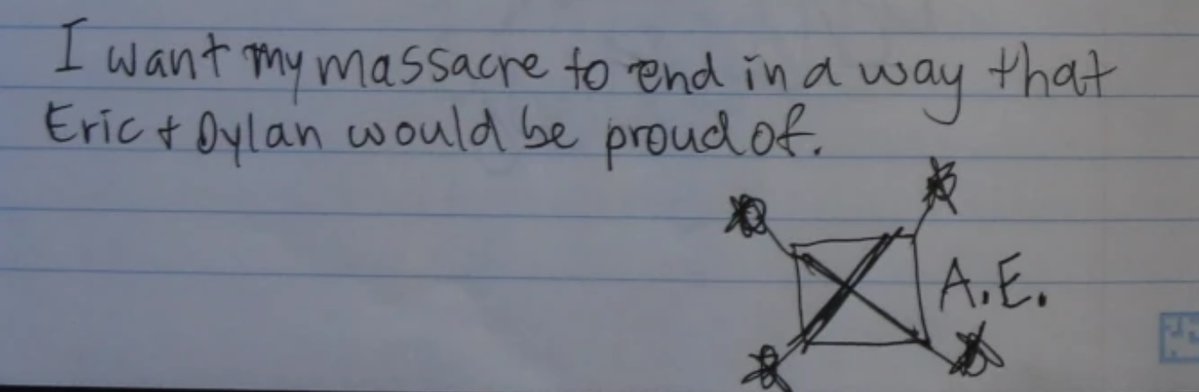 I want my massacre to end in a way that
Eric + Dylan would be proud of.
A.E.